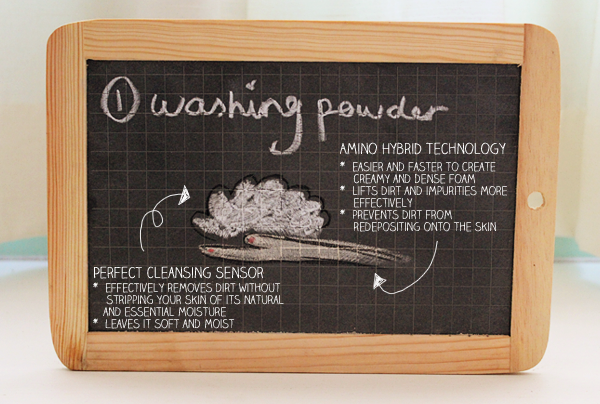 ① washing powder
AMINO HYBRID TECHNOLOGY
* EASIER AND FASTER TO CREATE
CREAMY AND DENSE FOAM
* LIFTS DIRT AND IMPURITIES MORE
EFFECTIVELY
* PREVENTS DIRT FROM
REDEPOSITING ONTO THE SKIN
PERFECT CLEANSING SENSOR
* EFFECTIVELY REMOVES DIRT WITHOUT
STRIPPING YOUR SKIN OF ITS NATURAL
AND ESSENTIAL MOISTURE
* LEAVES IT SOFT AND MOIST